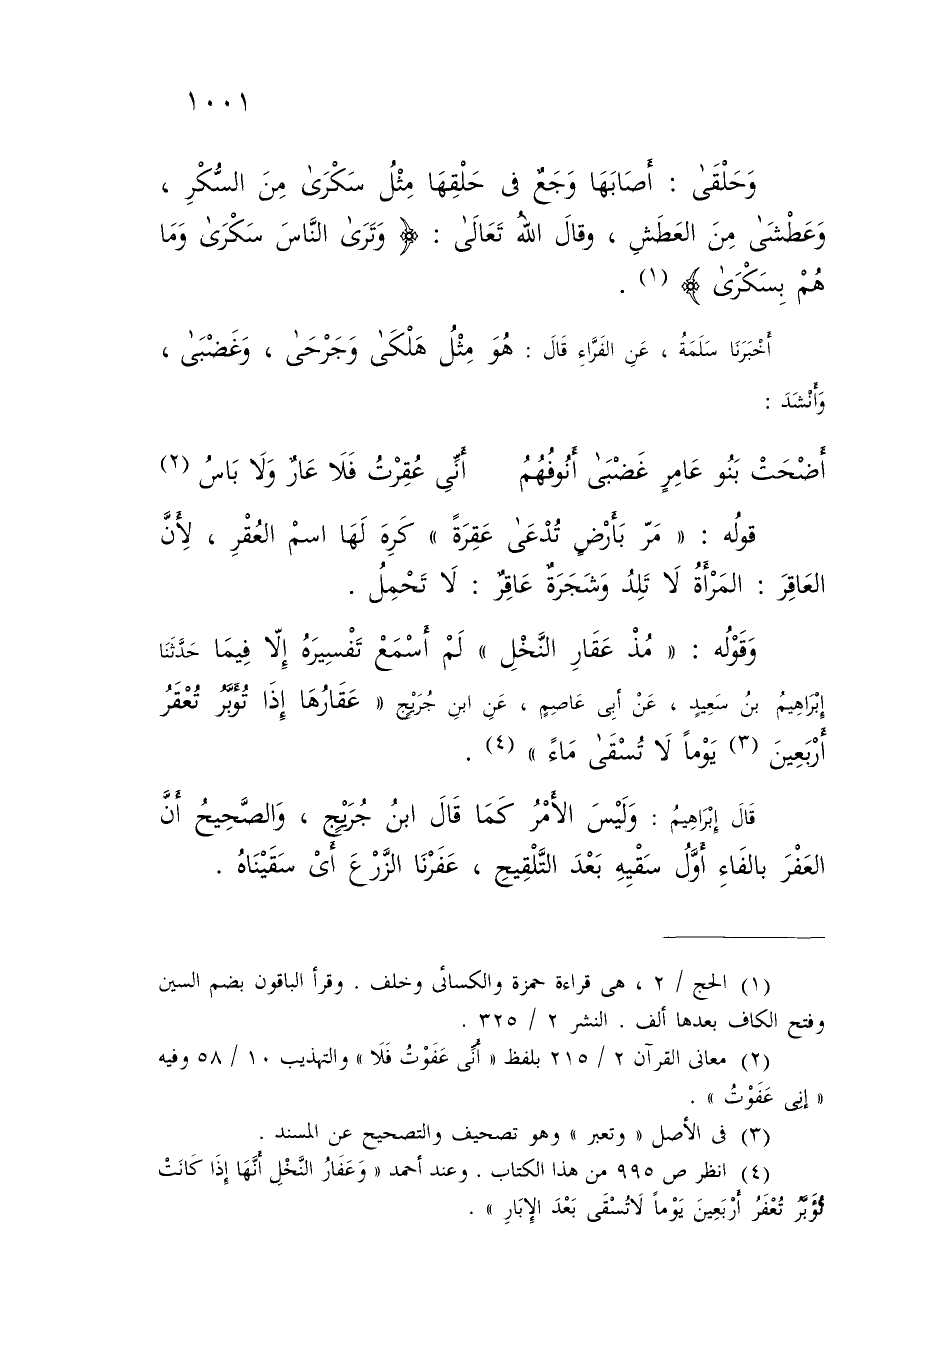 ١٠٠١
وَحَلْقَىٰ : أَصَابَهَا وَجَعٌ فى حَلْقِهَا مِثْلُ سَكْرَىٰ مِنَ السُّكْرِ ،
وَعَطْشَىٰ مِنَ العَطَشِ ، وقالَ اللهُ تَعَالَىٰ : ﴿ وَتَرَىٰ النَّاسَ سَكْرَىٰ وَمَا
هُمْ بِسَكْرَىٰ ﴾ (١) .
أَخْبَرَنَا سَلَمَةُ ، عَنِ الفَرَّاءِ قَالَ : هُوَ مِثْلُ هَلْكَىٰ وَجَرْحَىٰ ، وَغَضْبَىٰ ،
وَأَنْشَدَ :
أَضْحَتْ بَنُو عَامِرٍ غَضْبَىٰ أُنُوفُهُمُ أَنِّي عُقِرْتُ فَلَا عَارٌ وَلَا بَاسُ (٢)
قولُه : « مَرّ بَأَرْضٍ تُدْعَىٰ عَقِرَةً » كَرِهَ لَهَا اسمْ العُقْرِ ، لِأَنَّ
العَاقِرَ : المَرْأَةُ لَا تَلِدُ وَشَجَرَةٌ عَاقِرٌ : لَا تَحْمِلُ .
وَقَوْلُه : « مُذْ عَقَارِ النَّخْلِ » لَمْ أَسْمَعْ تَفْسِيرَهُ إِلّا فِيمَا حَدَّثَنَا
إِبْرَاهِيمُ بنُ سَعِيدٍ ، عَنْ أبى عاصِمٍ ، عَنِ ابنِ جُرَيْجٍ « عَقَارُهَا إِذَا تُؤَبَّرُ تُعْقَرُ
أَرْبَعِينَ (٣) يَوْماً لَا تُسْقَىٰ مَاءً » (٤) .
قَالَ إِبْرَاهِيمُ : وَلَيْسَ الأَمْرُ كَمَا قَالَ ابنُ جُرَيْجٍ ، وَالصَّحِيحُ أَنَّ
العَفْرَ بالفَاءِ أَوَّلُ سَقْيِهِ بَعْدَ التَّلْقِيحِ ، عَفَرْنَا الزَّرْعَ أَىْ سَقَيْنَاهُ .
(١) الحج / ٢ ، هى قراءة حمزة والكسائى وخلف . وقرأ الباقون بضم السين
وفتح الكاف بعدها ألف . النشر ٢ / ٣٢٥ .
(٢) معانى القرآن ٢ / ٢١٥ بلفظ « أَنِّى عَفَوْتُ فَلَا » والتهذيب ١٠ / ٥٨ وفيه
« إنِى عَفَوْتُ » .
(٣) فى الأصل « وتعبر » وهو تصحيف والتصحيح عن المسند .
(٤) انظر ص ٩٩٥ من هذا الكتاب . وعند أحمد « وَعَفَارُ النَّخْلِ أَنَّهَا إِذَا كَانَتْ
تُؤَبَّرُ تُعْفَرُ أَرْبَعِينَ يَوْماً لَاتُسْقَى بَعْدَ الإِبَارِ » .